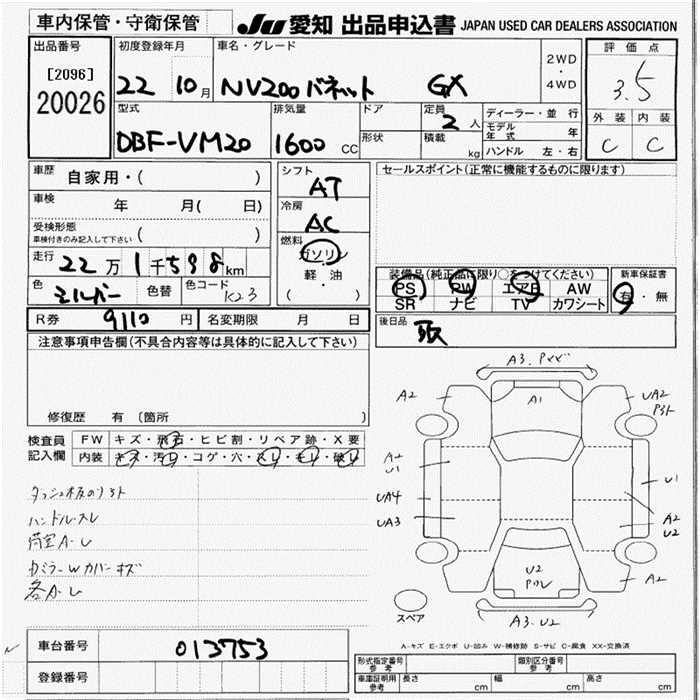 車内保管・守衛保管
JU 愛知 出品申込書 JAPAN USED CAR DEALERS ASSOCIATION
出品番号
[2096]
20026
初度登録年月
22 10月
車名・グレード
NV200バネット GX
2WD
・
4WD
評価点
3.5
外装 内装
C C
型式
DBF-VM20
排気量
1600 CC
ドア
形状
定員
2人
積載
kg
ディーラー・並行
モデル年式 年
ハンドル 左・右
車歴 自家用・( )
車検 年 月( 日)
受検形態
車検付きのみ記入して下さい ( )
走行 22万1千598km
色 シルバー 色替 色コード K23
シフト
AT
冷房
AC
燃料
ガソリン
軽・油
( )
セールスポイント(正常に機能するものに限ります)
装備品(純正品に限り○をつけてください)
PS PW エアB AW
SR ナビ TV カワシート
新車保証書
有・無
R券 9110円 名変期限 月 日
後日品 取
注意事項申告欄(不具合内容等は具体的に記入して下さい)
修復歴 有 〔箇所 〕
検査員記入欄
FW キズ・飛石・ヒビ割・リペア跡・X要
内装 キズ・汚レ・コゲ・穴・スレ・キレ・破レ
ハンドルスレ
荷室A-U
各A-U
A3.
A2
A1
UA2
A2
U1
UA4
UA3
U1
A2
U2
U2
A2
A3.U2
スペア
A-キズ E-エクボ U-凹み W-補修跡 S-サビ C-腐食 XX-交換済
車台番号 013753
登録番号
形式指定番号 参考
類別区分番号 参考
車庫証明用 参考
長さ cm 幅 cm 高さ cm